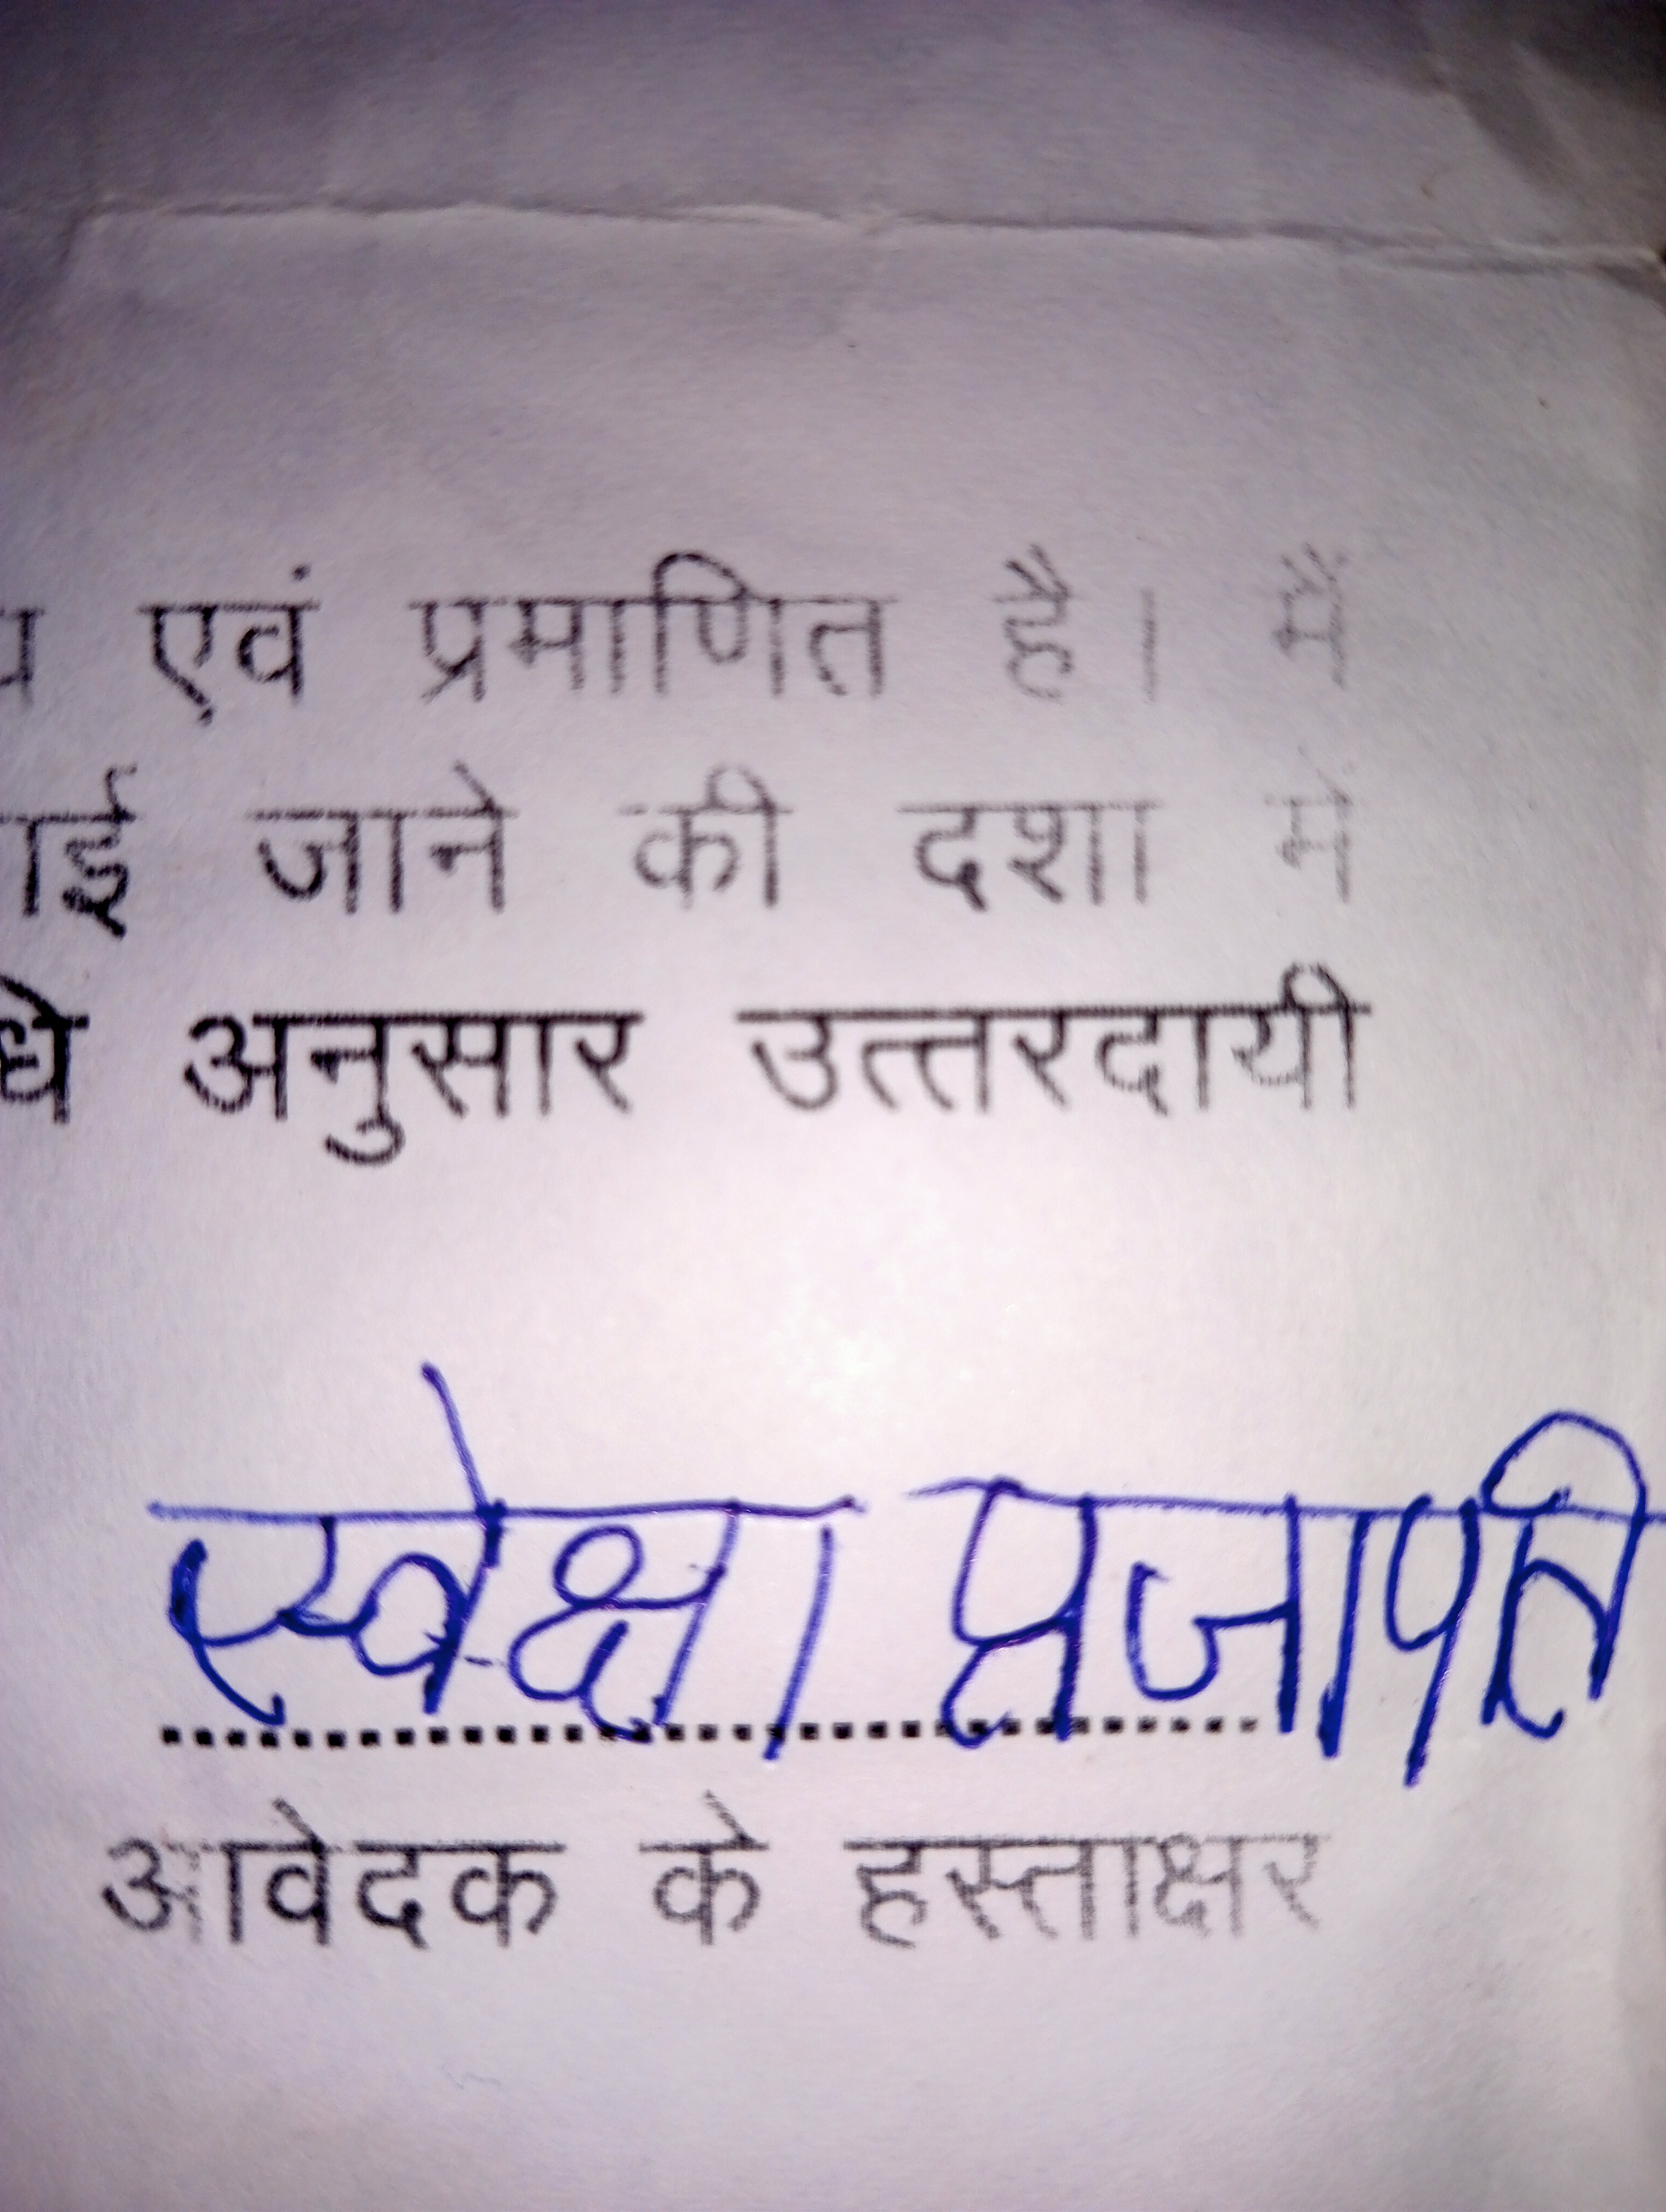 एवं प्रमाणित है। मैं
जाने की दशा में
अनुसार उत्तरदायी
स्वेक्षा प्रजापति
आवेदक के हस्ताक्षर